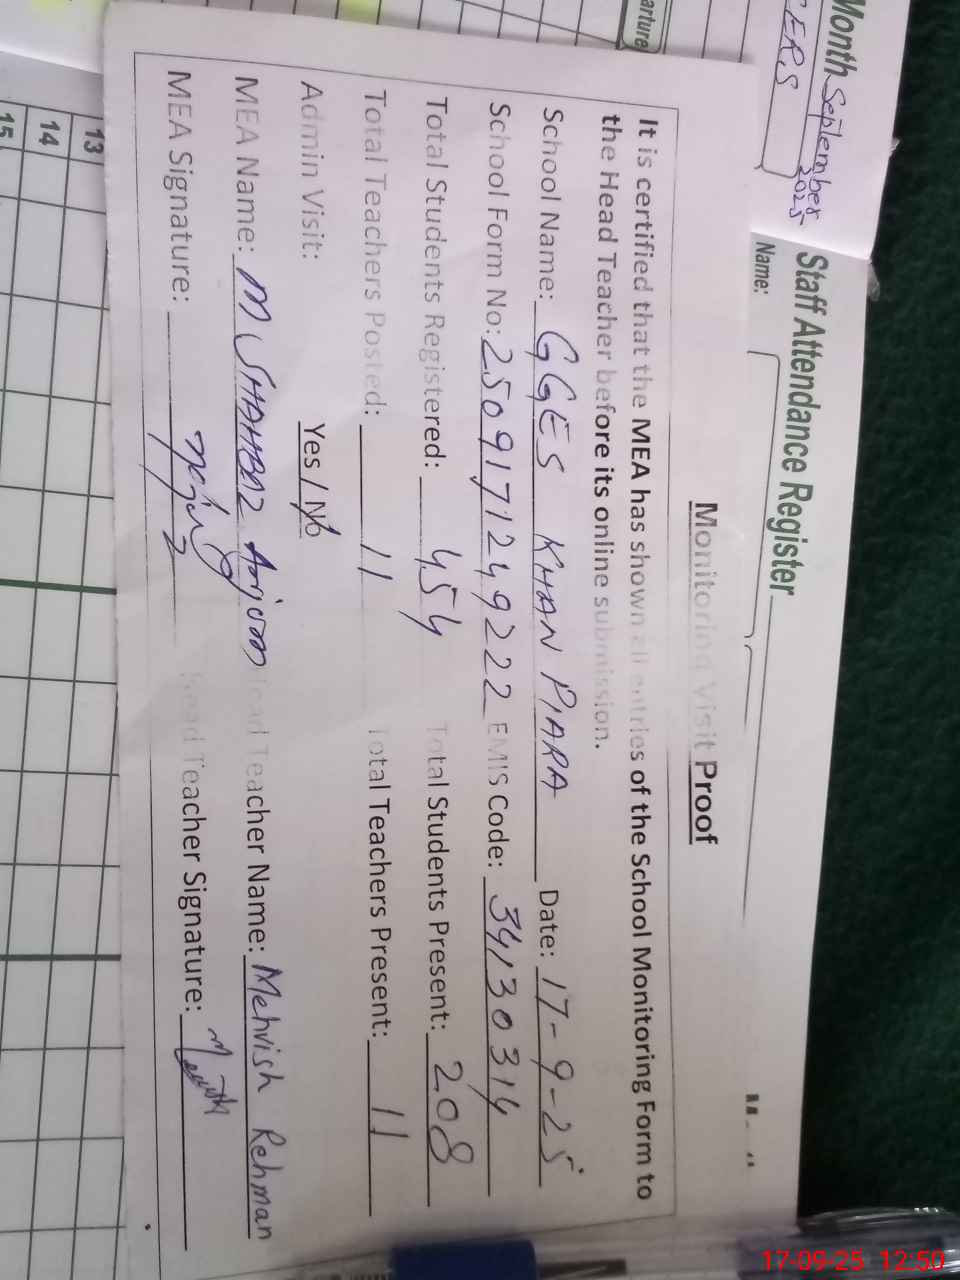 Month September 2025
Staff Attendance Register
Name:
Monitoring Visit Proof
It is certified that the MEA has shown all entries of the School Monitoring Form to
the Head Teacher before its online submission.
School Name: GGES KHAN PIARA Date: 17-9-25
School Form No: 2509171249222 EMIS Code: 34130314
Total Students Registered: 454 Total Students Present: 208
Total Teachers Posted: 11 Total Teachers Present: 11
Admin Visit: Yes / No
MEA Name: M SHAHBAZ Anjum Head Teacher Name: Mehvish Rehman
MEA Signature: Head Teacher Signature:
13
14
15
17-09-25 12:50